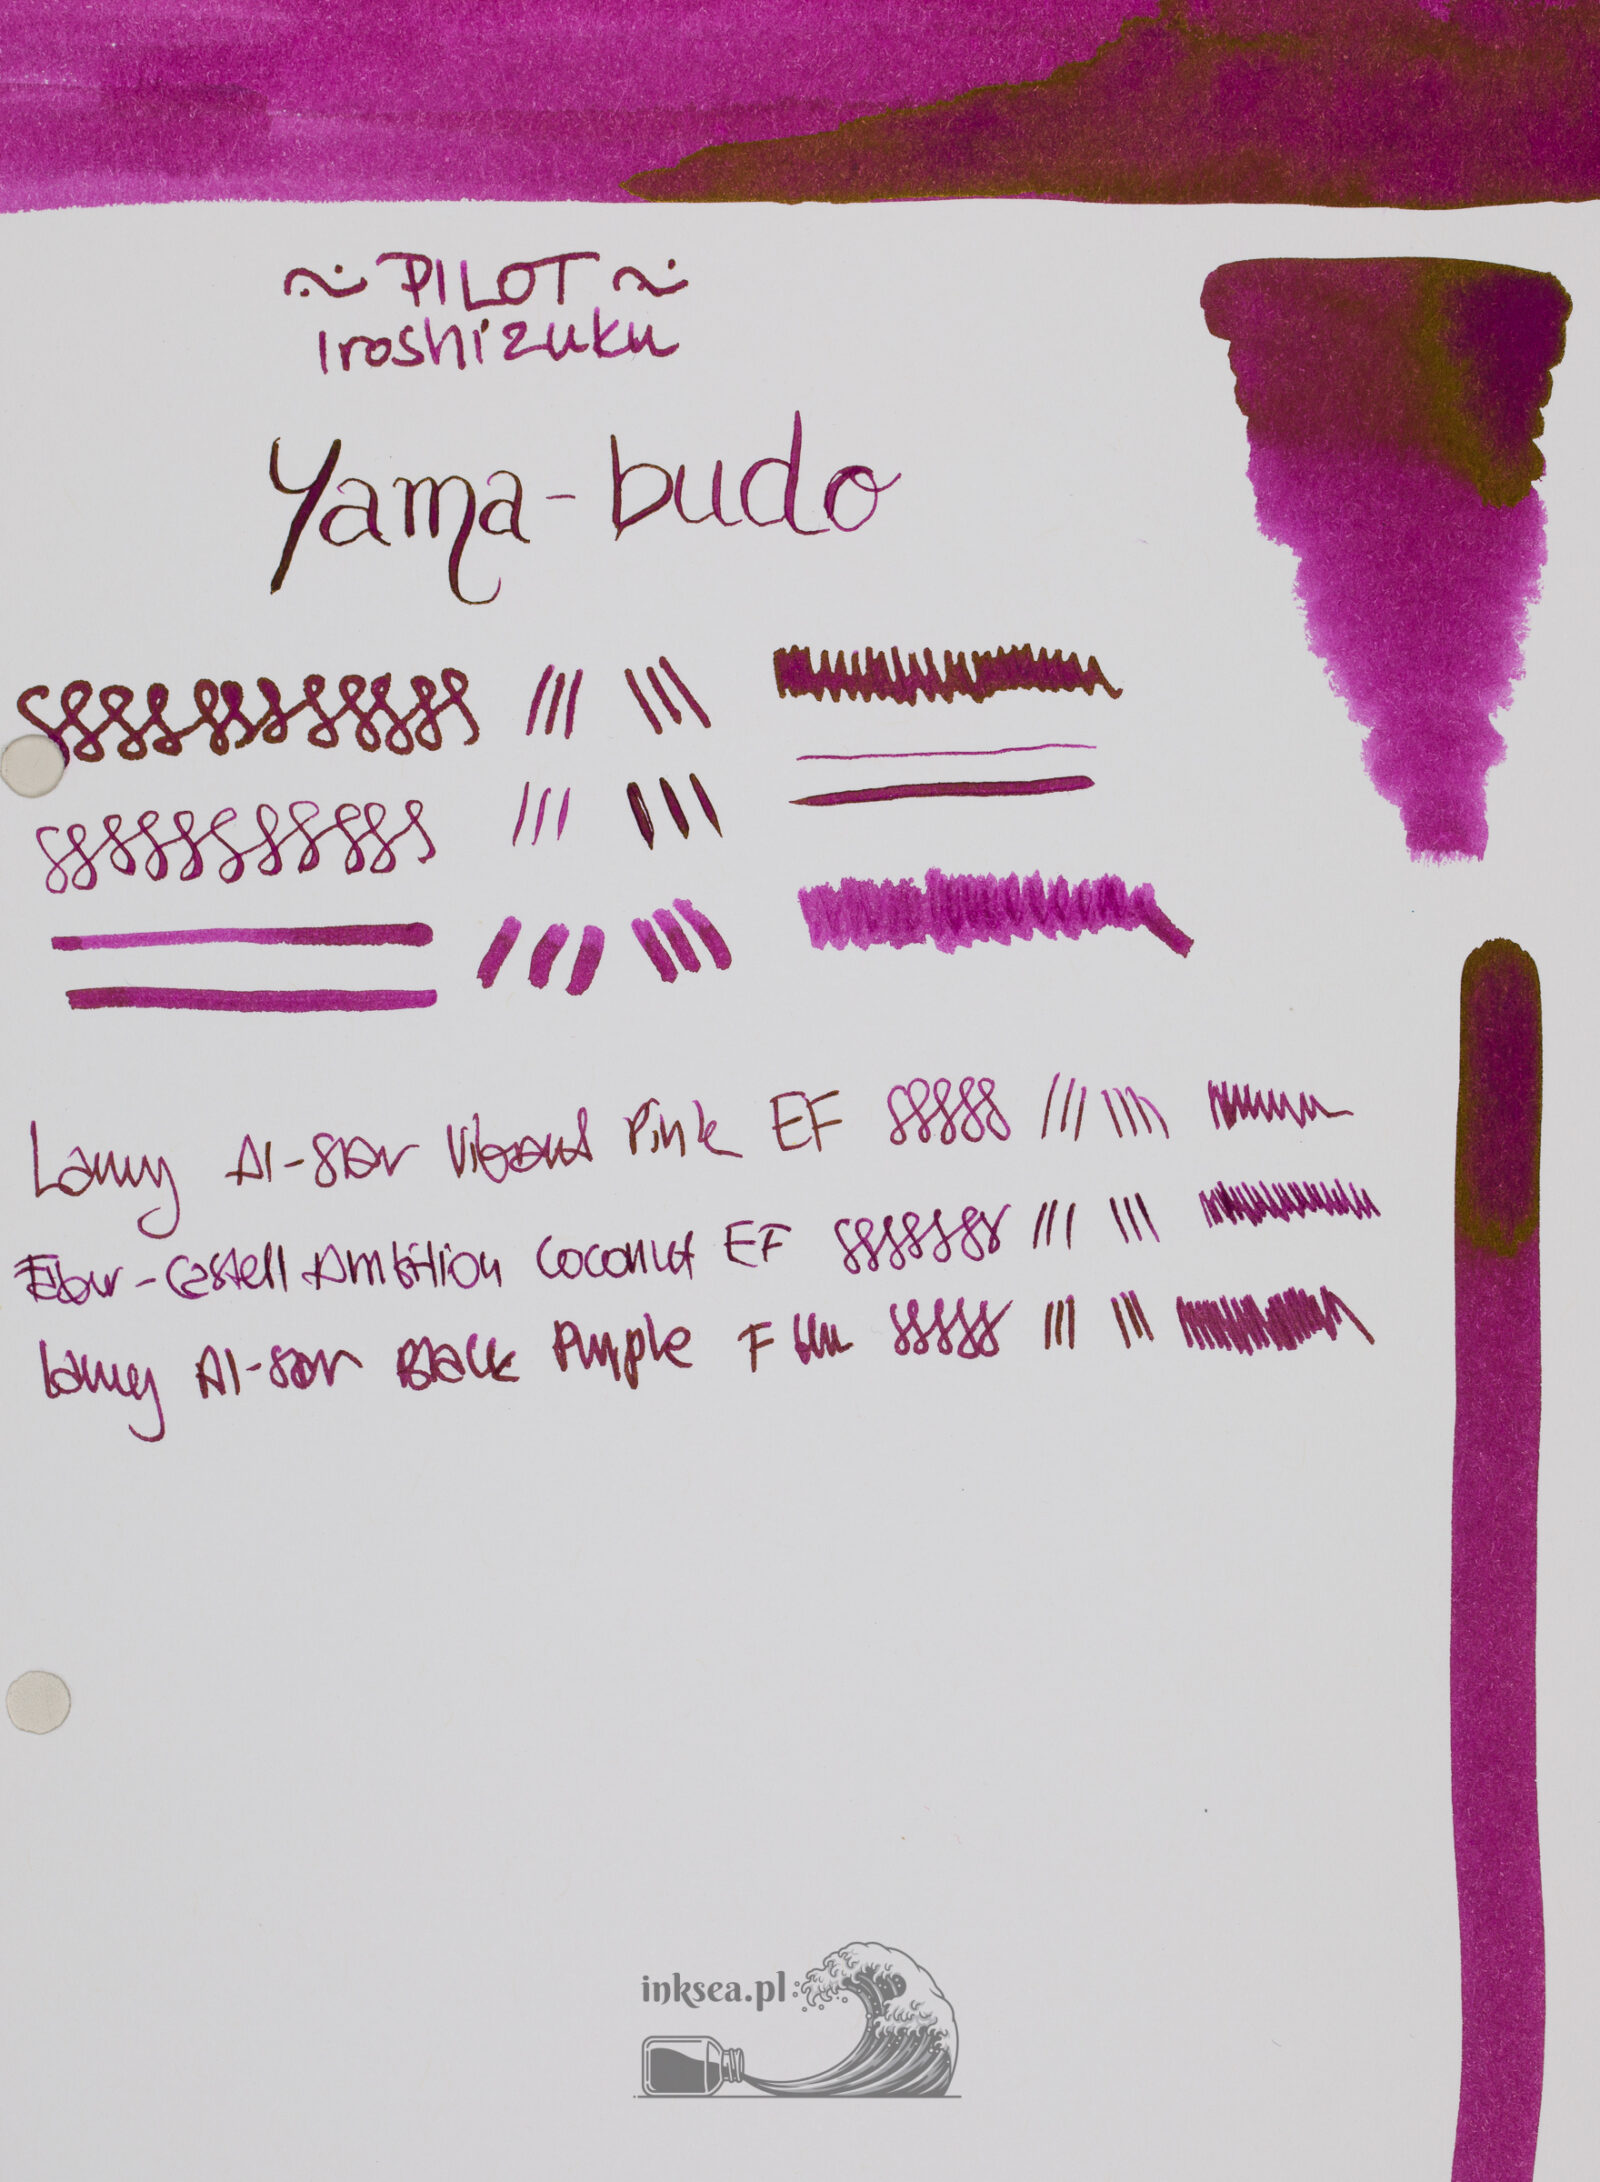 ~ PILOT ~
Iroshizuku
Yama-budo
Lamy Al-star Vibrant Pink EF
Faber-Castell Ambition Coconut EF
Lamy Al-star Black Purple F
inksea.pl